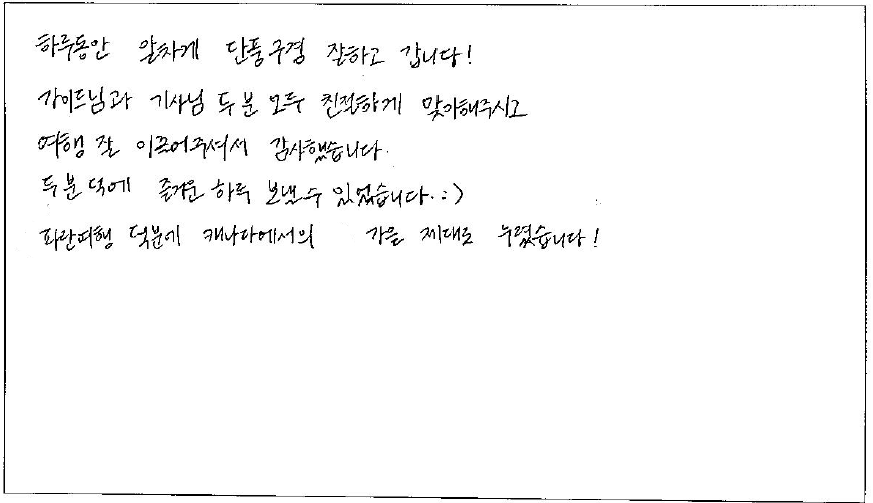 하루동안 알차게 단풍구경 잘하고 갑니다!
가이드님과 기사님 두분 모두 친절하게 맞이해주시고
여행 잘 이끌어주셔서 감사했습니다.
두분 덕에 즐거운 하루 보낼 수 있었습니다. :)
파란여행 덕분에 캐나다에서의 가을 제대로 누렸습니다!